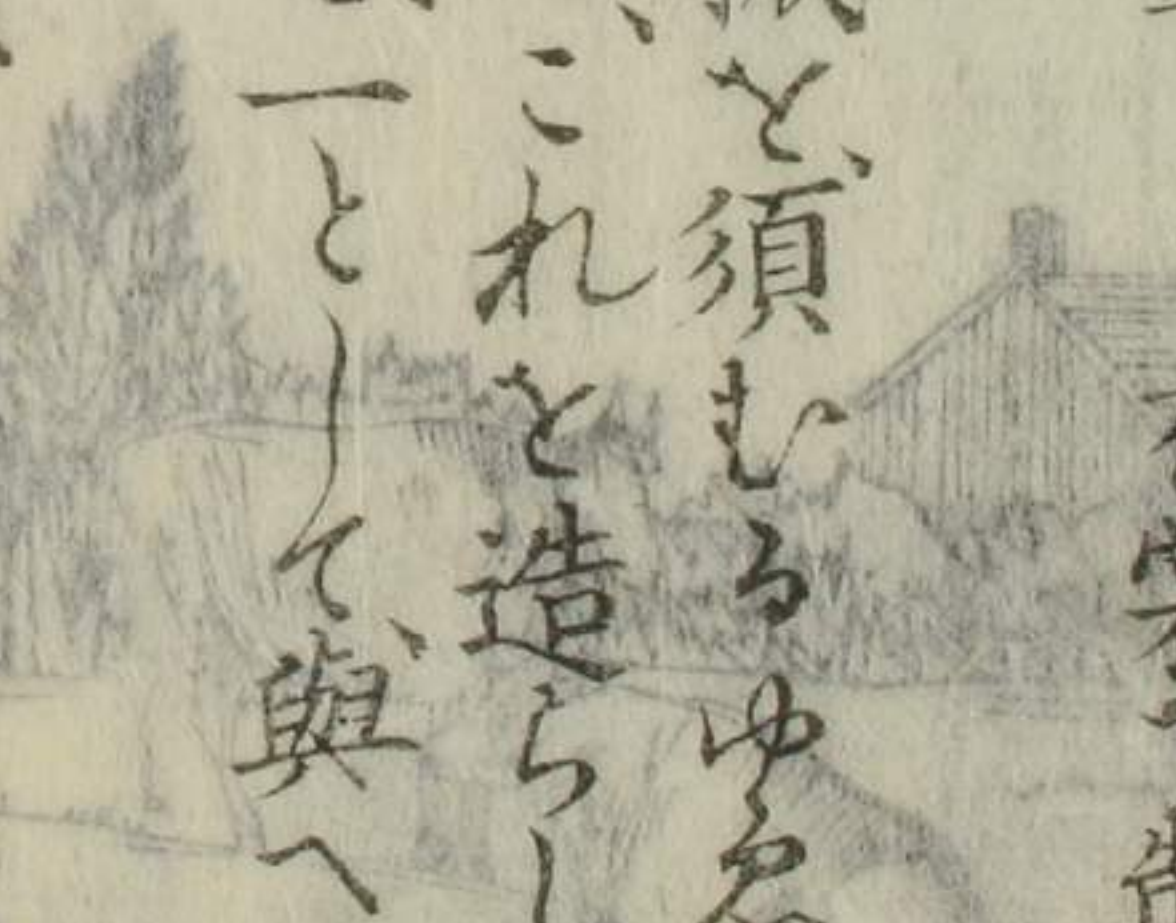 を、須むるゆゑ
これを造らし
一として、與へ